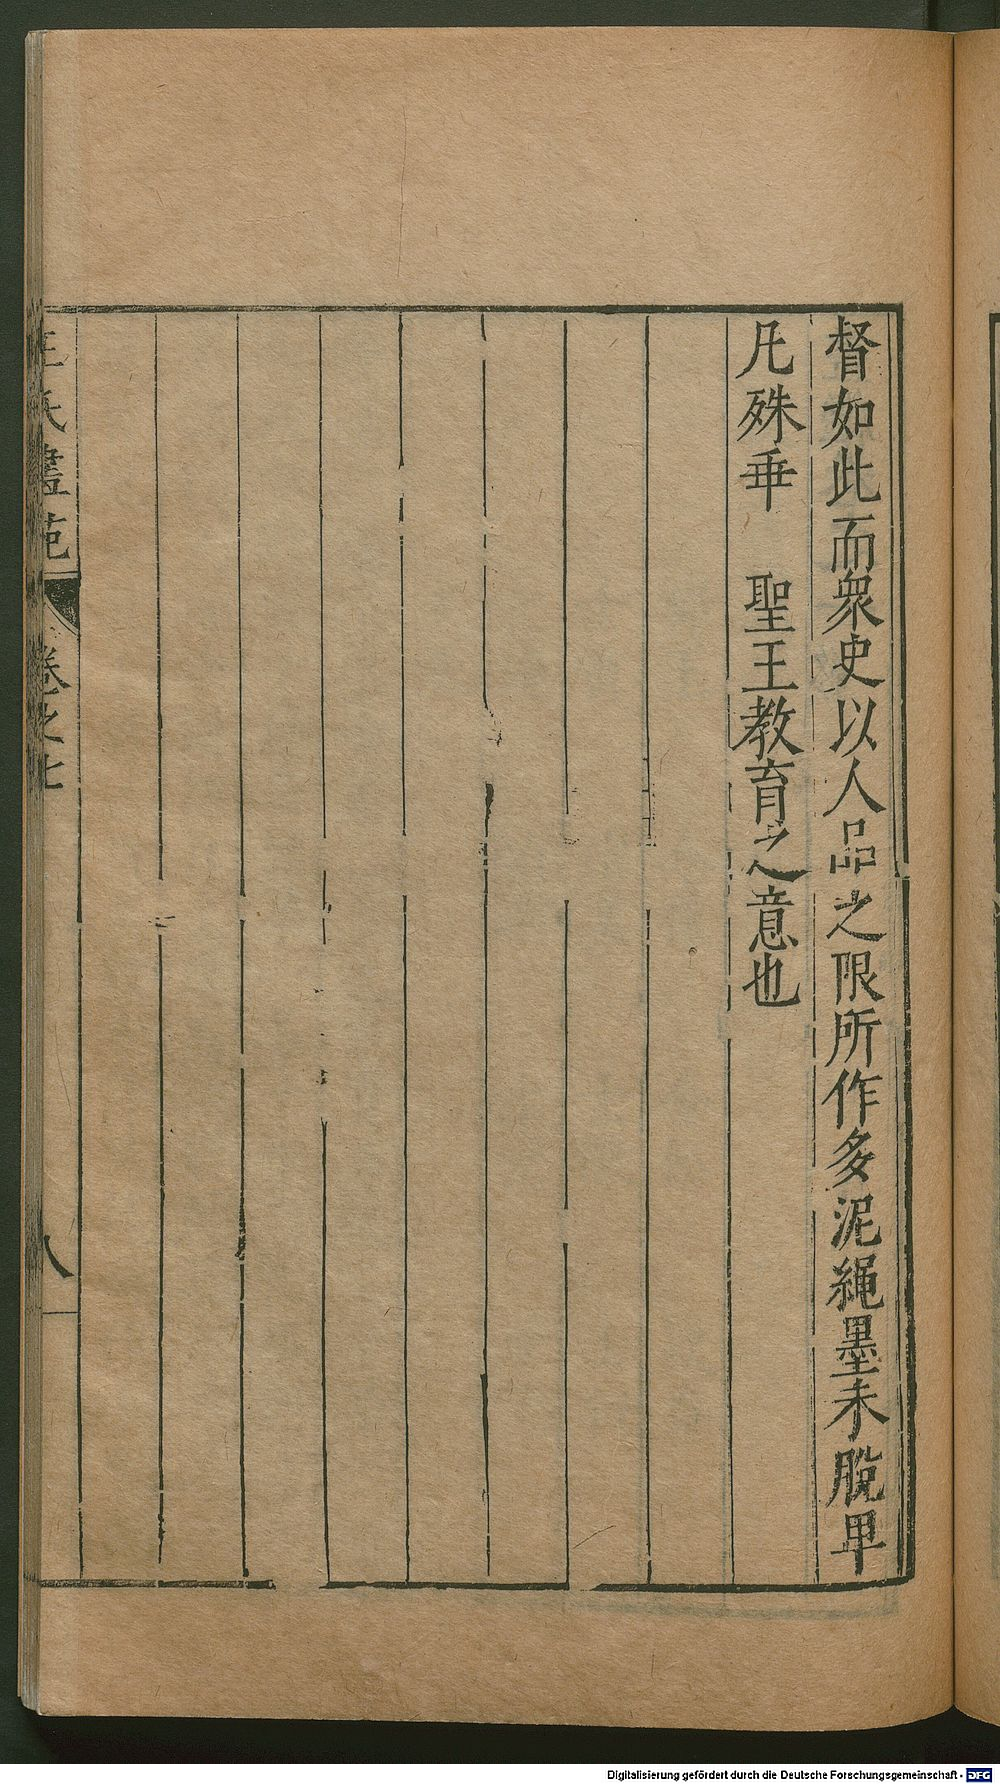 督如此而衆史以人品之限所作多泥繩墨未脫卑
凡殊乖　聖王教育之意也
王氏畫苑
卷之七
八
Digitalisierung gefördert durch die Deutsche Forschungsgemeinschaft - DFG